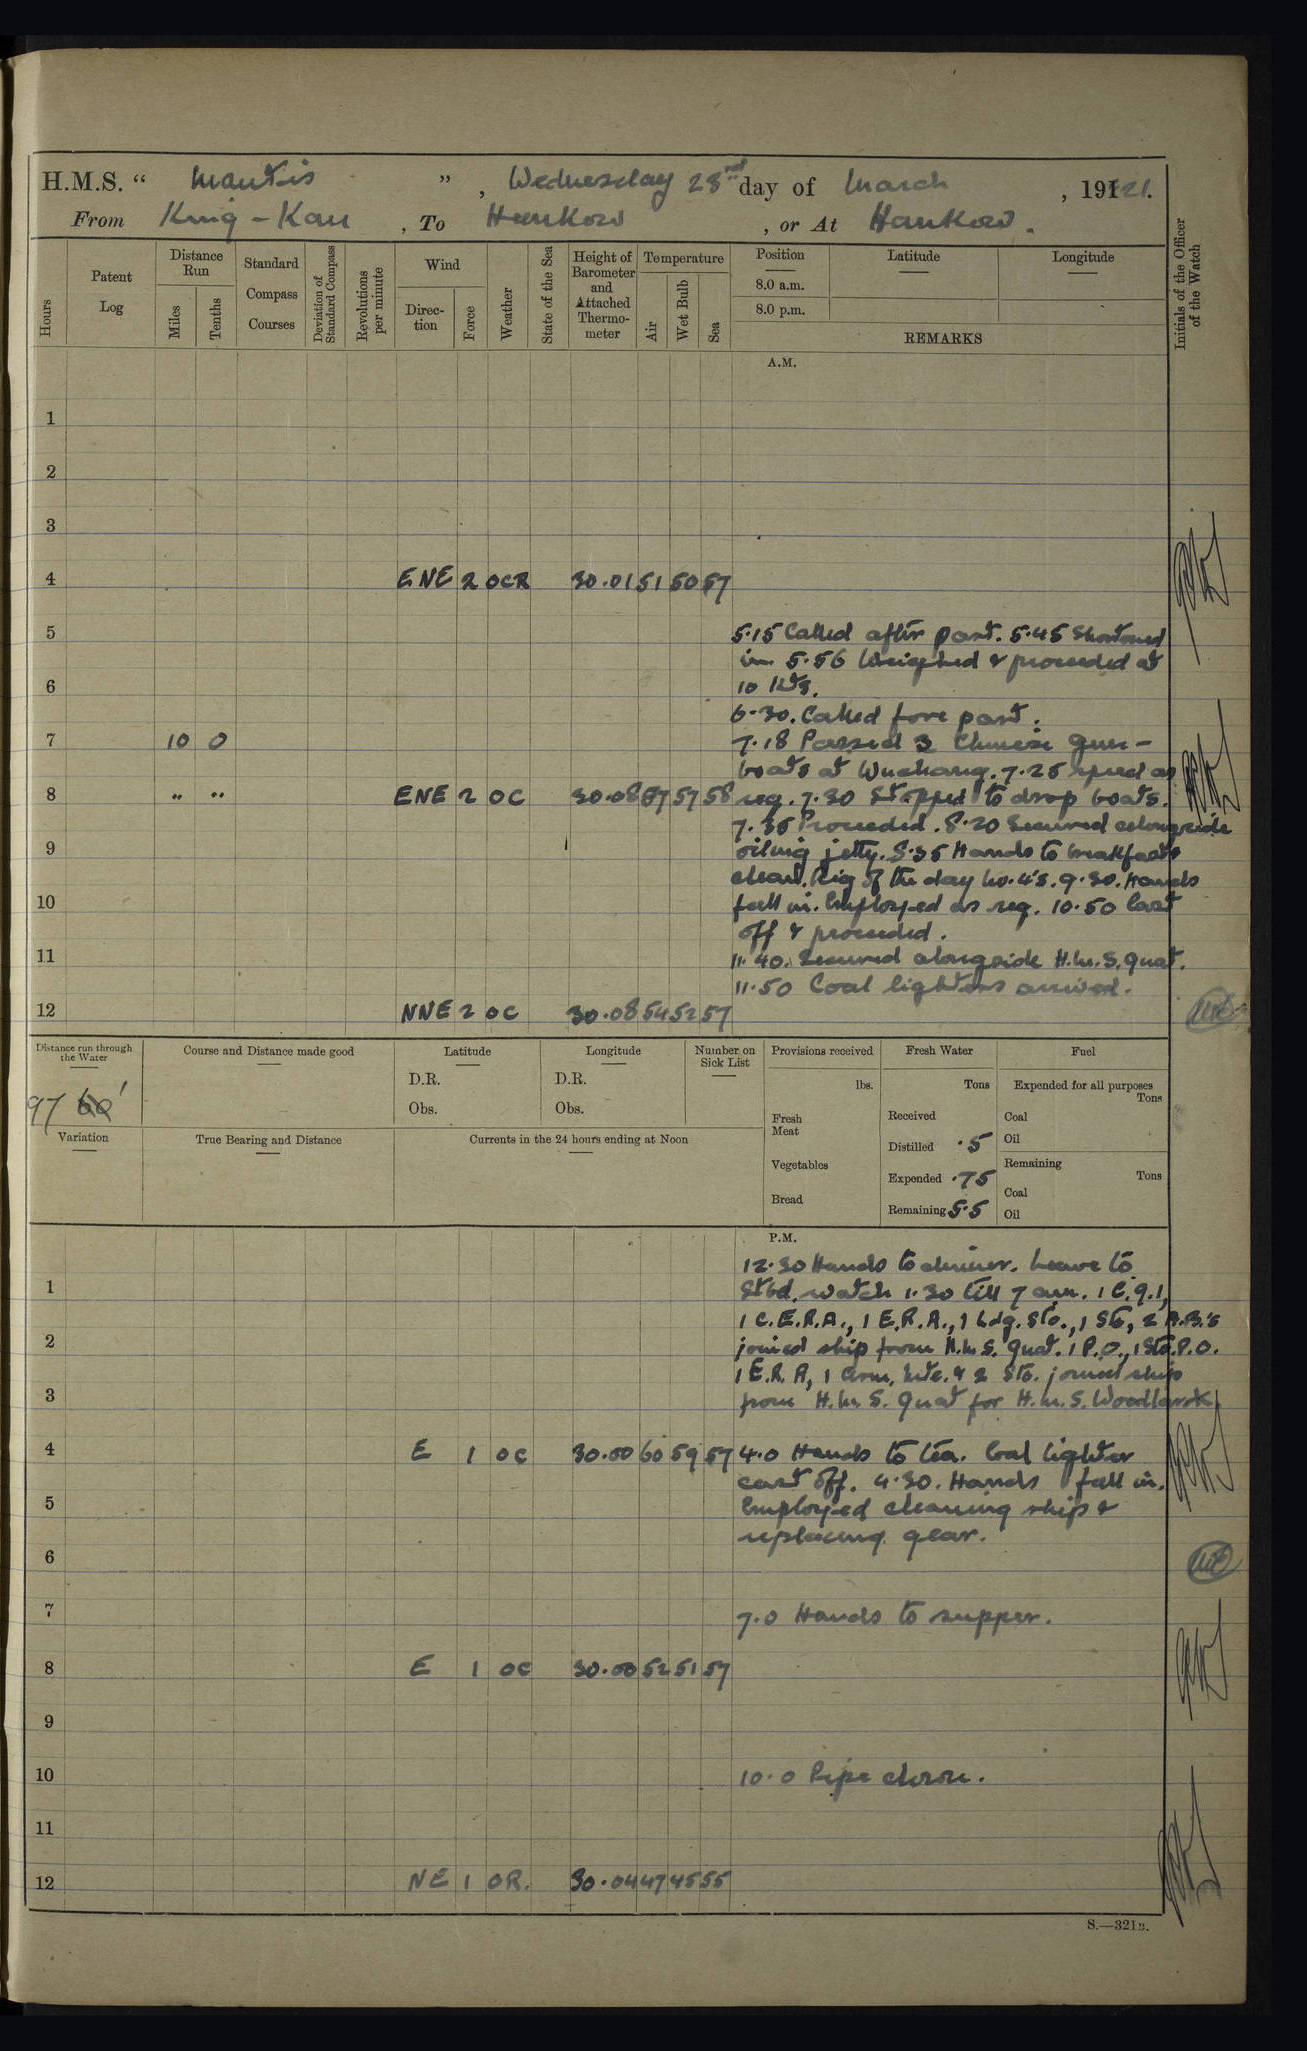 H.M.S. " Mantis ", Wednesday 23rd day of March, 1921.
From King-Kau, To Hankow, or At Hankow.
Hours
Patent Log
Distance Run
Miles
Tenths
Standard Compass Courses
Deviation of Standard Compass
Revolutions per minute
Wind
Direction
Force
Weather
State of the Sea
Height of Barometer and Attached Thermometer
Temperature
Air
Wet Bulb
Sea
Position
8.0 a.m.
8.0 p.m.
Latitude
Longitude
REMARKS
Initials of the Officer of the Watch
A.M.
1
2
3
4 ENE 2 OCR 30.01 51 50 57
5 5.15 Called after part. 5.45 Shortened
in 5.56 Weighed & proceeded at
6 10 Kts.
6.30. Called fore part.
7 10 0 7.18 Passed 3 Chinese gun-
boats at Wuchang. 7.25 speed as
8 " " ENE 2 OC 30.08 57 57 58 req. 7.30 Stopped to drop boats.
7.35 Proceeded. 8.20 Secured alongside
9 oiling jetty. 8.35 Hands to breakfast &
clean. Rig of the day No. 4's. 9.30. Hands
10 fall in. Employed as req. 10.50 Cast
off & proceeded.
11 11.40. Secured alongside H.M.S. Gnat.
11.50 Coal lighters arrived.
12 NNE 2 OC 30.08 54 52 57
Distance run through the Water
97 60'
Course and Distance made good
Latitude
D.R.
Obs.
Longitude
D.R.
Obs.
Number on Sick List
Provisions received
lbs.
Fresh Meat
Vegetables
Bread
Fresh Water
Tons
Received
Distilled .5
Expended .75
Remaining 5.5
Fuel
Expended for all purposes
Tons
Coal
Oil
Remaining
Tons
Coal
Oil
Variation
True Bearing and Distance
Currents in the 24 hours ending at Noon
P.M.
12.30 Hands to dinner. Leave to
1 Stbd. watch 1.30 till 7 am. 1 C.G.I,
1 C.E.R.A., 1 E.R.A., 1 Ldg. Sto., 1 Sto, 2 A.B.'s
2 joined ship from H.M.S. Gnat. 1 P.O., 1 Sto.P.O.
1 E.R.A, 1 Arm. & 2 Sto. joined ship
3 from H.M.S. Gnat for H.M.S. Woodlark
4 E 1 OC 30.00 60 59 57 4.0 Hands to tea. Coal lighter
cast off. 4.30. Hands fall in.
5 Employed cleaning ship &
replacing gear.
6
7 7.0 Hands to supper.
8 E 1 OC 30.00 52 51 57
9
10 10.0 Pipe down.
11
12 NE 1 OR. 30.04 47 45 55
S.—321B.